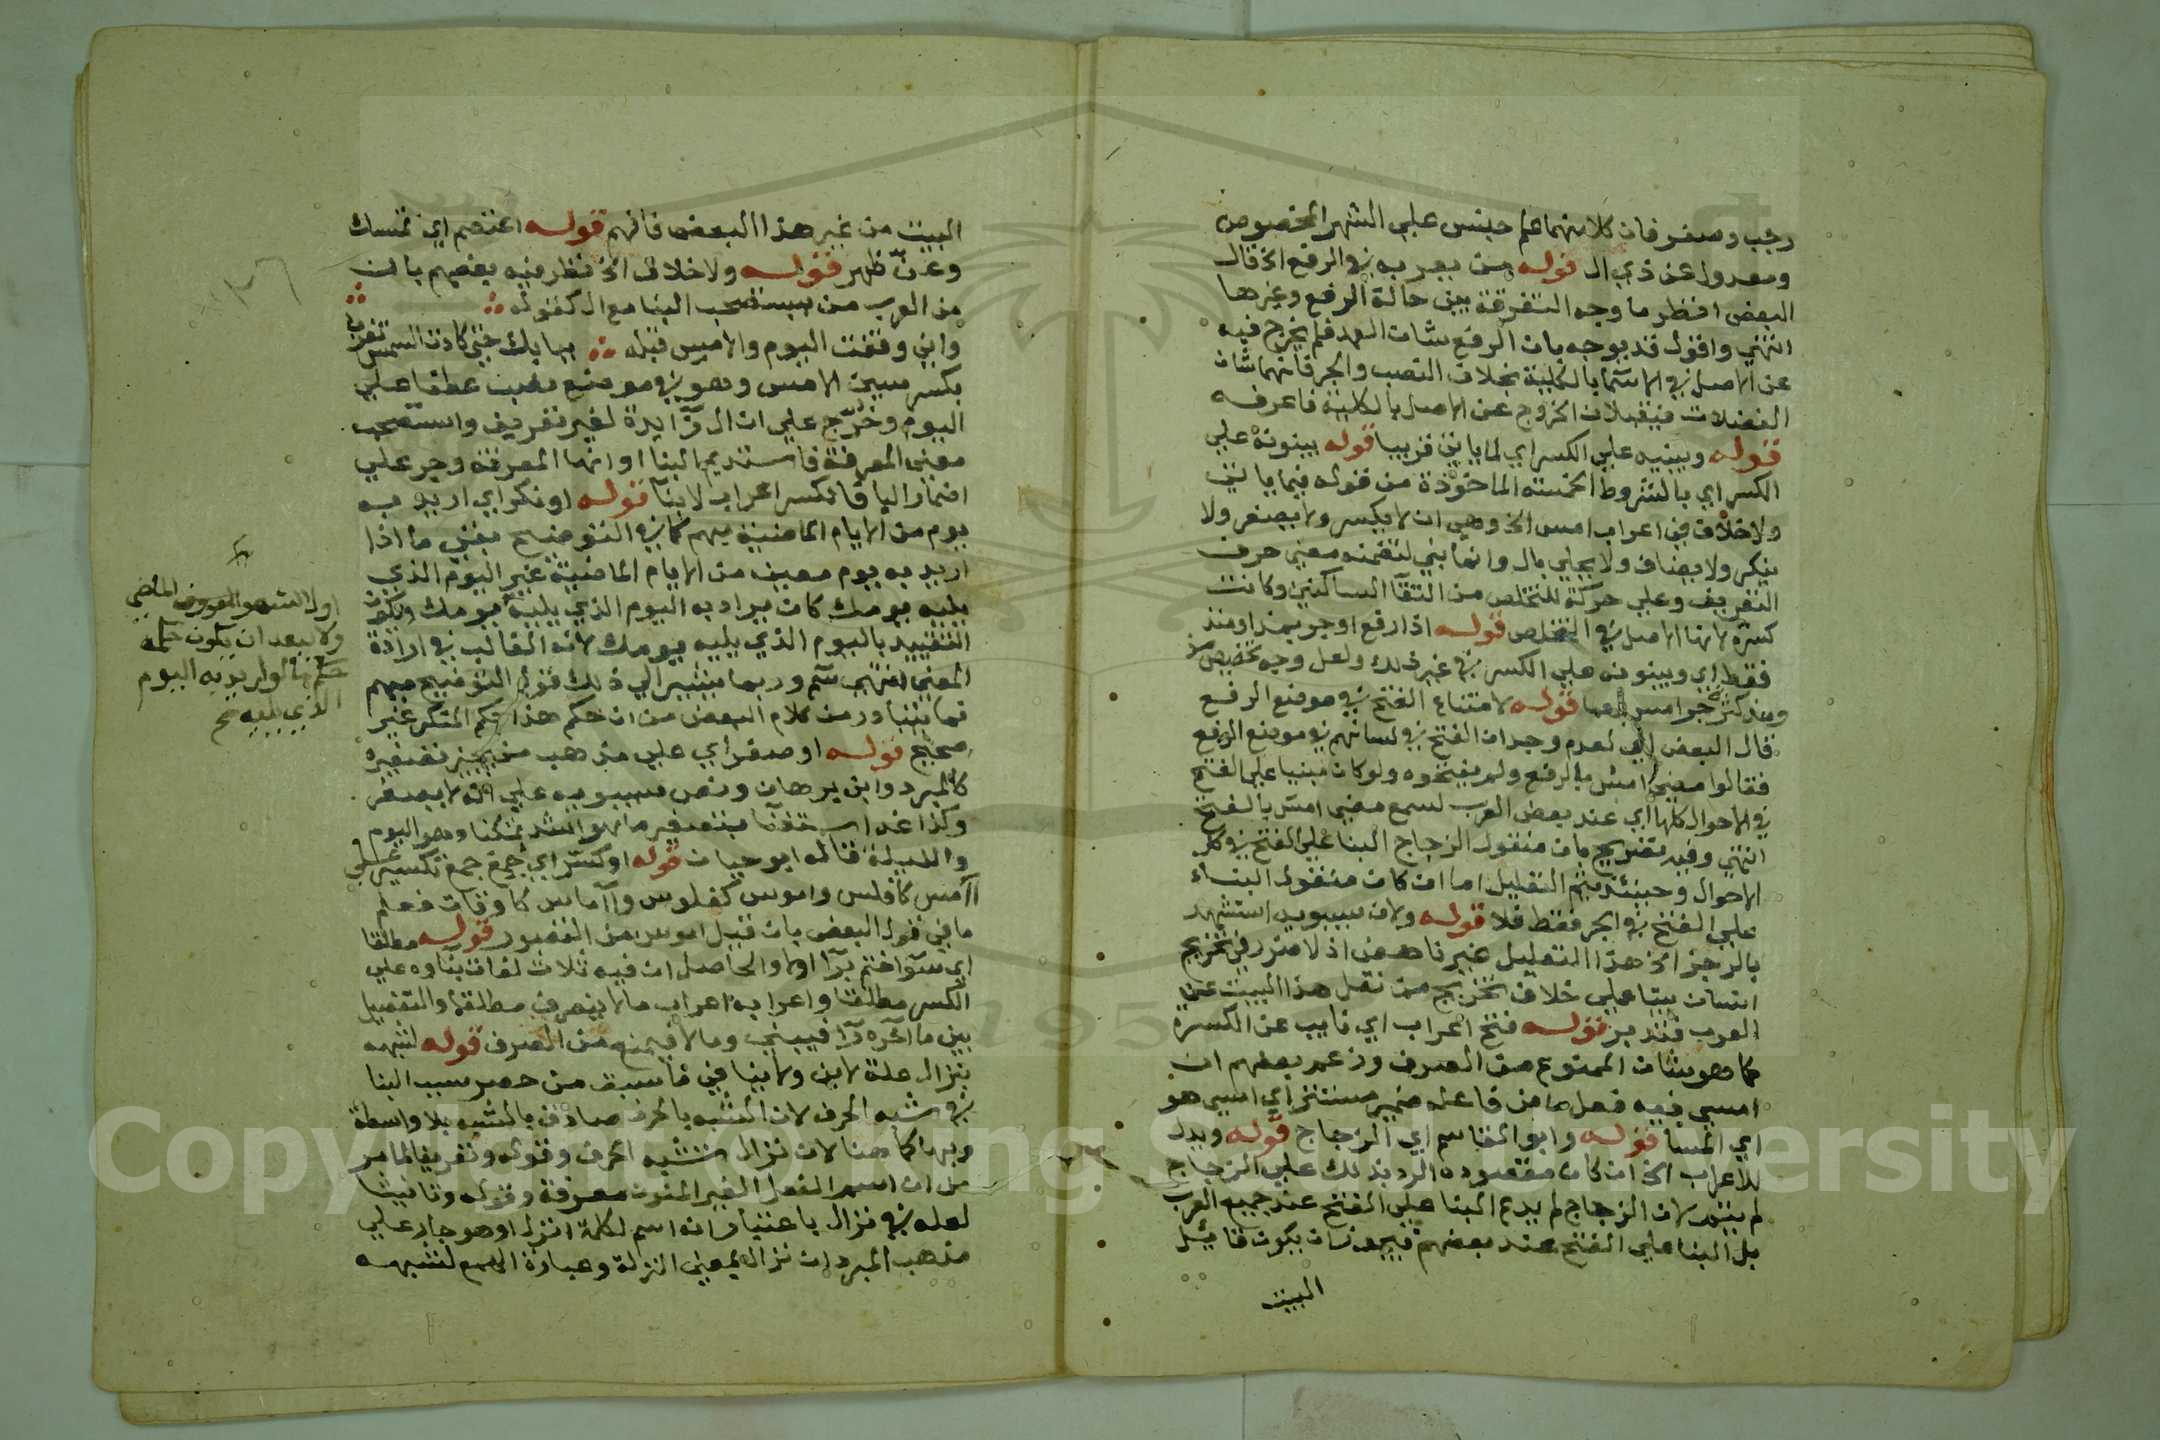 رجب وصفر فان كلا منهما علم جنس علي الشهر المخصوص
ومعدول عن ذي ال قوله من يعربه في الرفع الخ قال
البعض انظر ما وجه التفرقة بين حالة الرفع وغيرها
انتهي واقول قد يوجه بان الرفع شان العمد فلم يخرج فيه
عن الاصل في الاسما بالكلية بخلاف النصب والجر فانهما شان
الفضلات فيقبلان الخروج عن الاصل بالكلية فاعرفه
قوله ويبنيه علي الكسر اي لما ياتي قريبا قوله يبنونه علي
الكسر اي بالشروط الخمسة الماخوذة من قوله فيما ياتي
ولا خلاف في اعراب امس الخ وهي ان لا يكسر ولا يصغر ولا
ينكر ولا يضاف ولا يحلي بال وانما بني لتضمنه معني حرف
التعريف وعلي حركة للتخلص من التقآ الساكنين وكانت
كسرة لانها الاصل في التخلص قوله اذا رفع او جر بمذ او منذ
فقط اي ويبنونه علي الكسر في غير ذلك ولعل وجه تخصيص مذ
ومنذ كثرة جر امس بهما قوله لامتناع الفتح في موضع الرفع
قال البعض اي لعدم وجدان الفتح في لسانهم في موضع الرفع
فقالوا مضي امس بالرفع ولم يفتحوه ولو كان مبنيا علي الفتح
في الاحوال كلها اي عند بعض العرب لسمع مضي امس بالفتح
انتهي وفيه تصريح بان منقول الزجاج البنا علي الفتح في كل
الاحوال وحينئذ يتم التعليل اما ان كان منقوله البناء
علي الفتح في الجر فقط فلا قوله ولان سيبويه استشهد
بالرجز الخ هذا التعليل غير ناهض اذ لا ضرر في تخريج
انسان بيتا علي خلاف تخريج من نقل هذا البيت عن
العرب فتدبر قوله فتح اعراب اي نايب عن الكسرة
كما هو شان الممنوع من الصرف وزعم بعضهم ان
امسي فيه فعل ماض فاعله ضمير مستتر اي امسي هو
اي المسا قوله وابو القاسم اي الزجاج قوله ويدل
للاعراب الخ ان كان مقصوده الرد بذلك علي الزجاج
لم يتم لان الزجاج لم يدع البنا علي الفتح عند جميع العرب
بل البنا علي الفتح عند بعضهم فيجوز ان يكون قائل
البيت
البيت من غير هذا البعض فافهم قوله اعتصم اي تمسك
وعن ظهر قوله ولا خلاف الخ نظر فيه بعضهم بان
من العرب من يستصحب البنا مع ال كقوله
واني وقفت اليوم والامس قبله ببابك حتي كادت الشمس تغرب
بكسر سين الامس وهو في موضع نصب عطفا علي
اليوم وخرّج علي ان ال زايدة لغير تعريف واستصحب
معني المعرفة فاستديم البنا او انها المعرفة وجر علي
اضمار البا فالكسر اعراب لا بنآ قوله او نكر اي اريد به
يوم من الايام الماضية مبهم كما في التوضيح بقي ما اذا
اريد به يوم معين من الايام الماضية غير اليوم الذي
يليه يومك كان يراد به اليوم الذي يليه يومك ويكون
التقييد باليوم الذي يليه يومك لانه الغالب في ارادة
المعين انتهي سم وربما يشير الي ذلك قول التوضيح مبهم
فما يتبادر من كلام البعض من ان حكم هذا حكم المنكر غير
صحيح قوله او صغر اي علي مذهب من يجيز تصغيره
كالمبرد وابن برهان ونص سيبويه علي انه لا يصغر
وكذا غدا استغنآ بتصغير ما هو اشد تمكنا وهو اليوم
والليلة قاله ابو حيان قوله او كسر اي جمع جمع تكسير علي
آمس كافلس واموس كفلوس وآماس كاوقات فعلم
ما في قول البعض بان قبل اموس من القصور قوله مطلقا
اي سوآ ختم برآ اولا والحاصل ان فيه ثلاث لغات بناوه علي
الكسر مطلقا واعرابه اعراب ما لا ينصرف مطلقا والتفصيل
بين ما اخره رآ فيبني وما لا فيمنع من الصرف قوله لشبهه
بنزال علة لابن ولا ينافي ما سبق من حصر سبب البنا
في شبه الحرف لان الشبه بالحرف صادق بالشبه بلا واسطة
وبها كما هنا لان نزال شبه الحرف وقوله وتعريفا لما مر
من ان اسم الفعل الغير المنون معرفة وقوله وتانيثا
لعله في نزال باعتبار انه اسم لكلمة انزل او هو جار علي
مذهب المبرد ان نزال بمعني النزلة وعبارة الهمع لشبهه
ولا يبعد ان يكون حكمه
حكم ما لو اريد به اليوم
الذي يليه صح
Copyright © King Saud University
1957